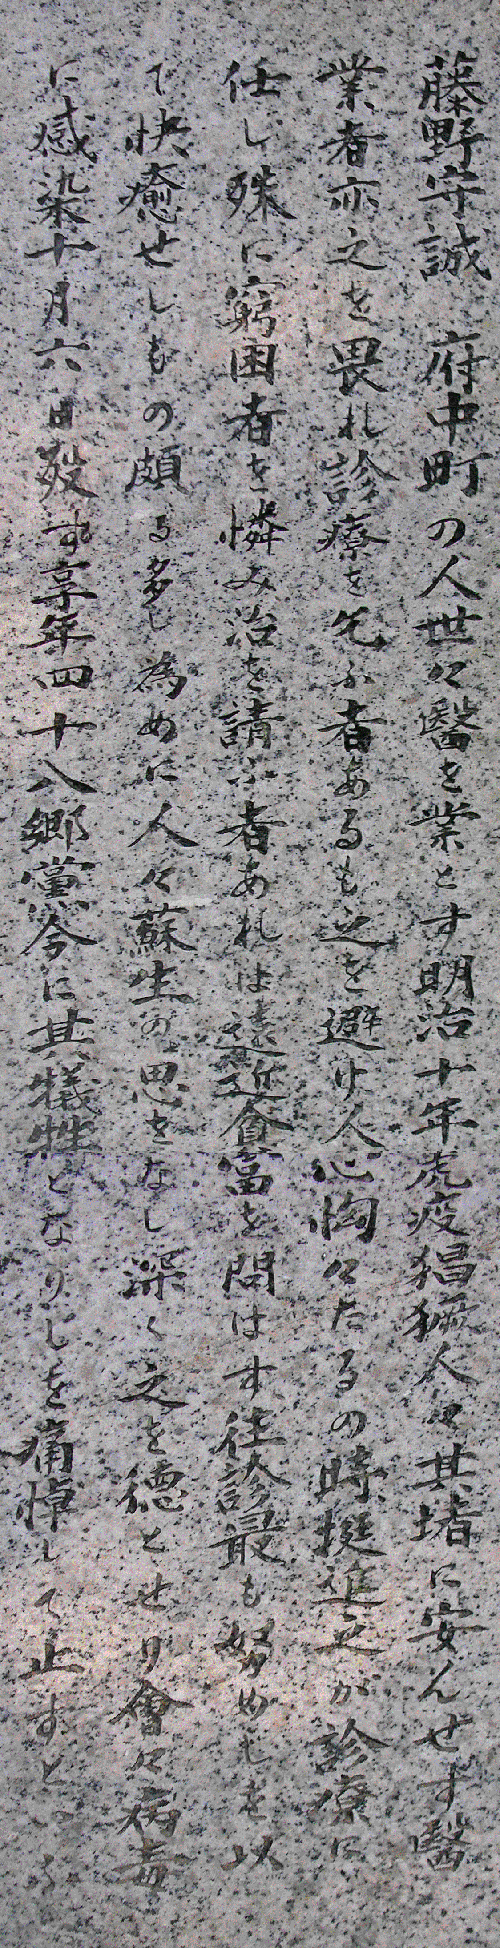 藤野守誠　府中町の人世々醫を業とす明治十年虎疫猖獗人々其堵に安んせず醫
業者亦之を畏れ診療を乞ふ者あるも之を避け人心恟々たるの時挺進之が診療に
任し殊に窮困者を憐み治を請ふ者あれは遠近貧富を問はす往診最も努めしを以
て快癒せしもの頗る多し為めに人々蘇生の思をなし深く之を徳とせり會々病毒
に感染十月六日歿す享年四十八郷黨今に其犠牲となりしを痛悼して止すと云ふ